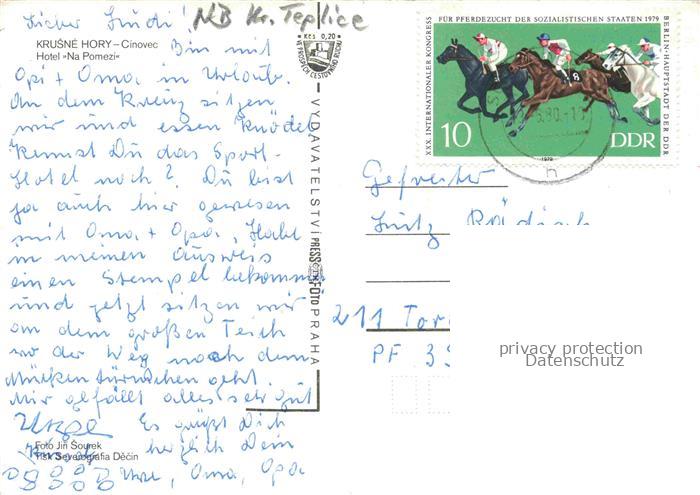 NB Kr. Teplice
KRUŠNÉ HORY – Cínovec
Hotel »Na Pomezí«
Bin mit
Opi + Oma in Urlaub.
An dem Kreuz sitzen
wir und essen Knödel
Kennst Du das Sport-
Hotel noch? Du bist
ja auch hier gewesen
mit Oma + Opa, Habe
in meinen Ausweis
einen Stempel bekommen
und jetzt sitzen wir
an dem großen Teich
wo der Weg nach dem
Mückentürmchen geht.
Mir gefällt alles sehr gut
Es grüßt Dich
herzlich Dein
Oma, Opa
Foto Jiří Šourek
Tisk Severografia Děčín
Kčs 0,20
VE PROSPĚCH CESTOVNÍHO RUCHU
VYDAVATELSTVÍ PRESSFOTO PRAHA
XXX. INTERNATIONALER KONGRESS FÜR PFERDEZUCHT DER SOZIALISTISCHEN STAATEN 1979
BERLIN-HAUPTSTADT DER DDR
8
10
DDR
1979
Gefreiter
211 Tor
PF 39
privacy protection
Datenschutz